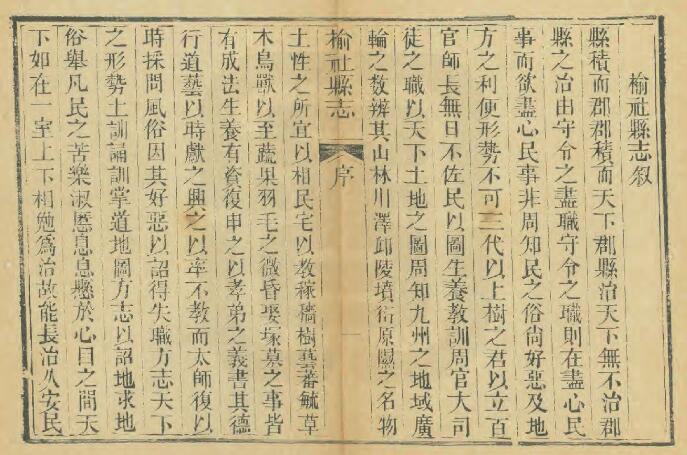 榆社縣志叙
縣積而郡郡積而天下郡縣治天下無不治郡
縣之治由守令之盡職守令之職則在盡心民
事而欲盡心民事非周知民之俗尚好惡及地
方之利便形勢不可三代以上樹之君以立百
官師長無日不佐民以圖生養教訓周官大司
徒之職以天下土地之圖周知九州之地域廣
輪之数辨其山林川澤邱陵墳衍原隰之名物
榆社縣志
序
一
土性之所宜以相民宅以教稼穡樹藝蕃毓草
木鳥獸以至蔬果羽毛之微昏娶塚墓之事皆
有成法生養有資復申之以孝弟之義書其德
行道藝以時獻之興之以率不教而太師復以
時採問風俗因其好惡以詔得失職方志天下
之形勢土訓誦訓掌道地圖方志以詔地求地
俗舉凡民之苦樂淑慝息息懸於心目之間天
下如在一室上下相勉為治故能長治久安民